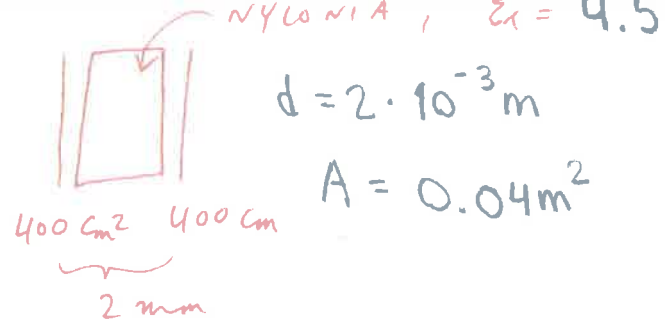 NYLONIA, εr = 4.5
d = 2 · 10⁻³ m
A = 0.04 m²
400 cm² 400 cm
2 mm